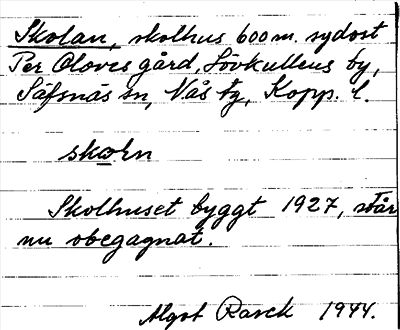 Skolan, skolhus 600 m. sydost
Per Olovsgård, Lövkullens by,
Säfsnäs sn, Nås tg, Kopp. l.
skoln
Skolhuset byggt 1927, står
nu obegagnat.
Algot 1944.